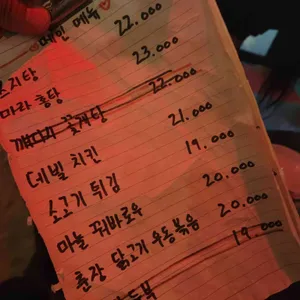 ♡메인 메뉴♡
스지탕 22.000
마라 홍탕 23.000
22.000
데빌 치킨 21.000
소고기 튀김 19.000
마늘 꿔바로우 20.000
춘장 닭고기 우동볶음 20.000
19.000